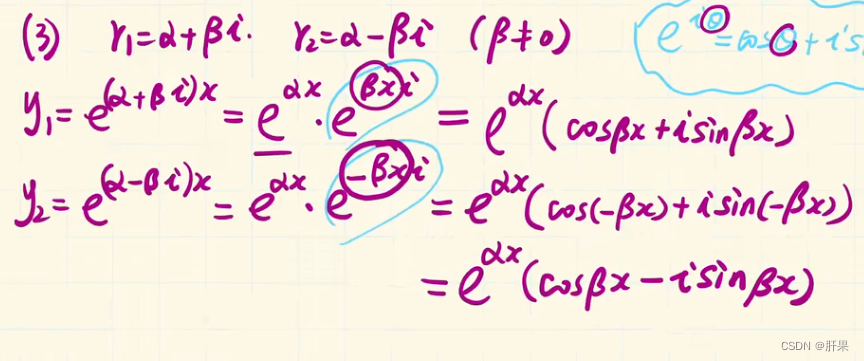 (3) r₁=α+βi. r₂=α-βi (β≠0) e^{iθ}=cosθ+i
y₁=e^{(α+βi)x}=e^{αx}·e^{βxi}=e^{αx}(cosβx+isinβx)
y₂=e^{(α-βi)x}=e^{αx}·e^{-βxi}=e^{αx}(cos(-βx)+isin(-βx))
=e^{αx}(cosβx-isinβx)
CSDN @肝果